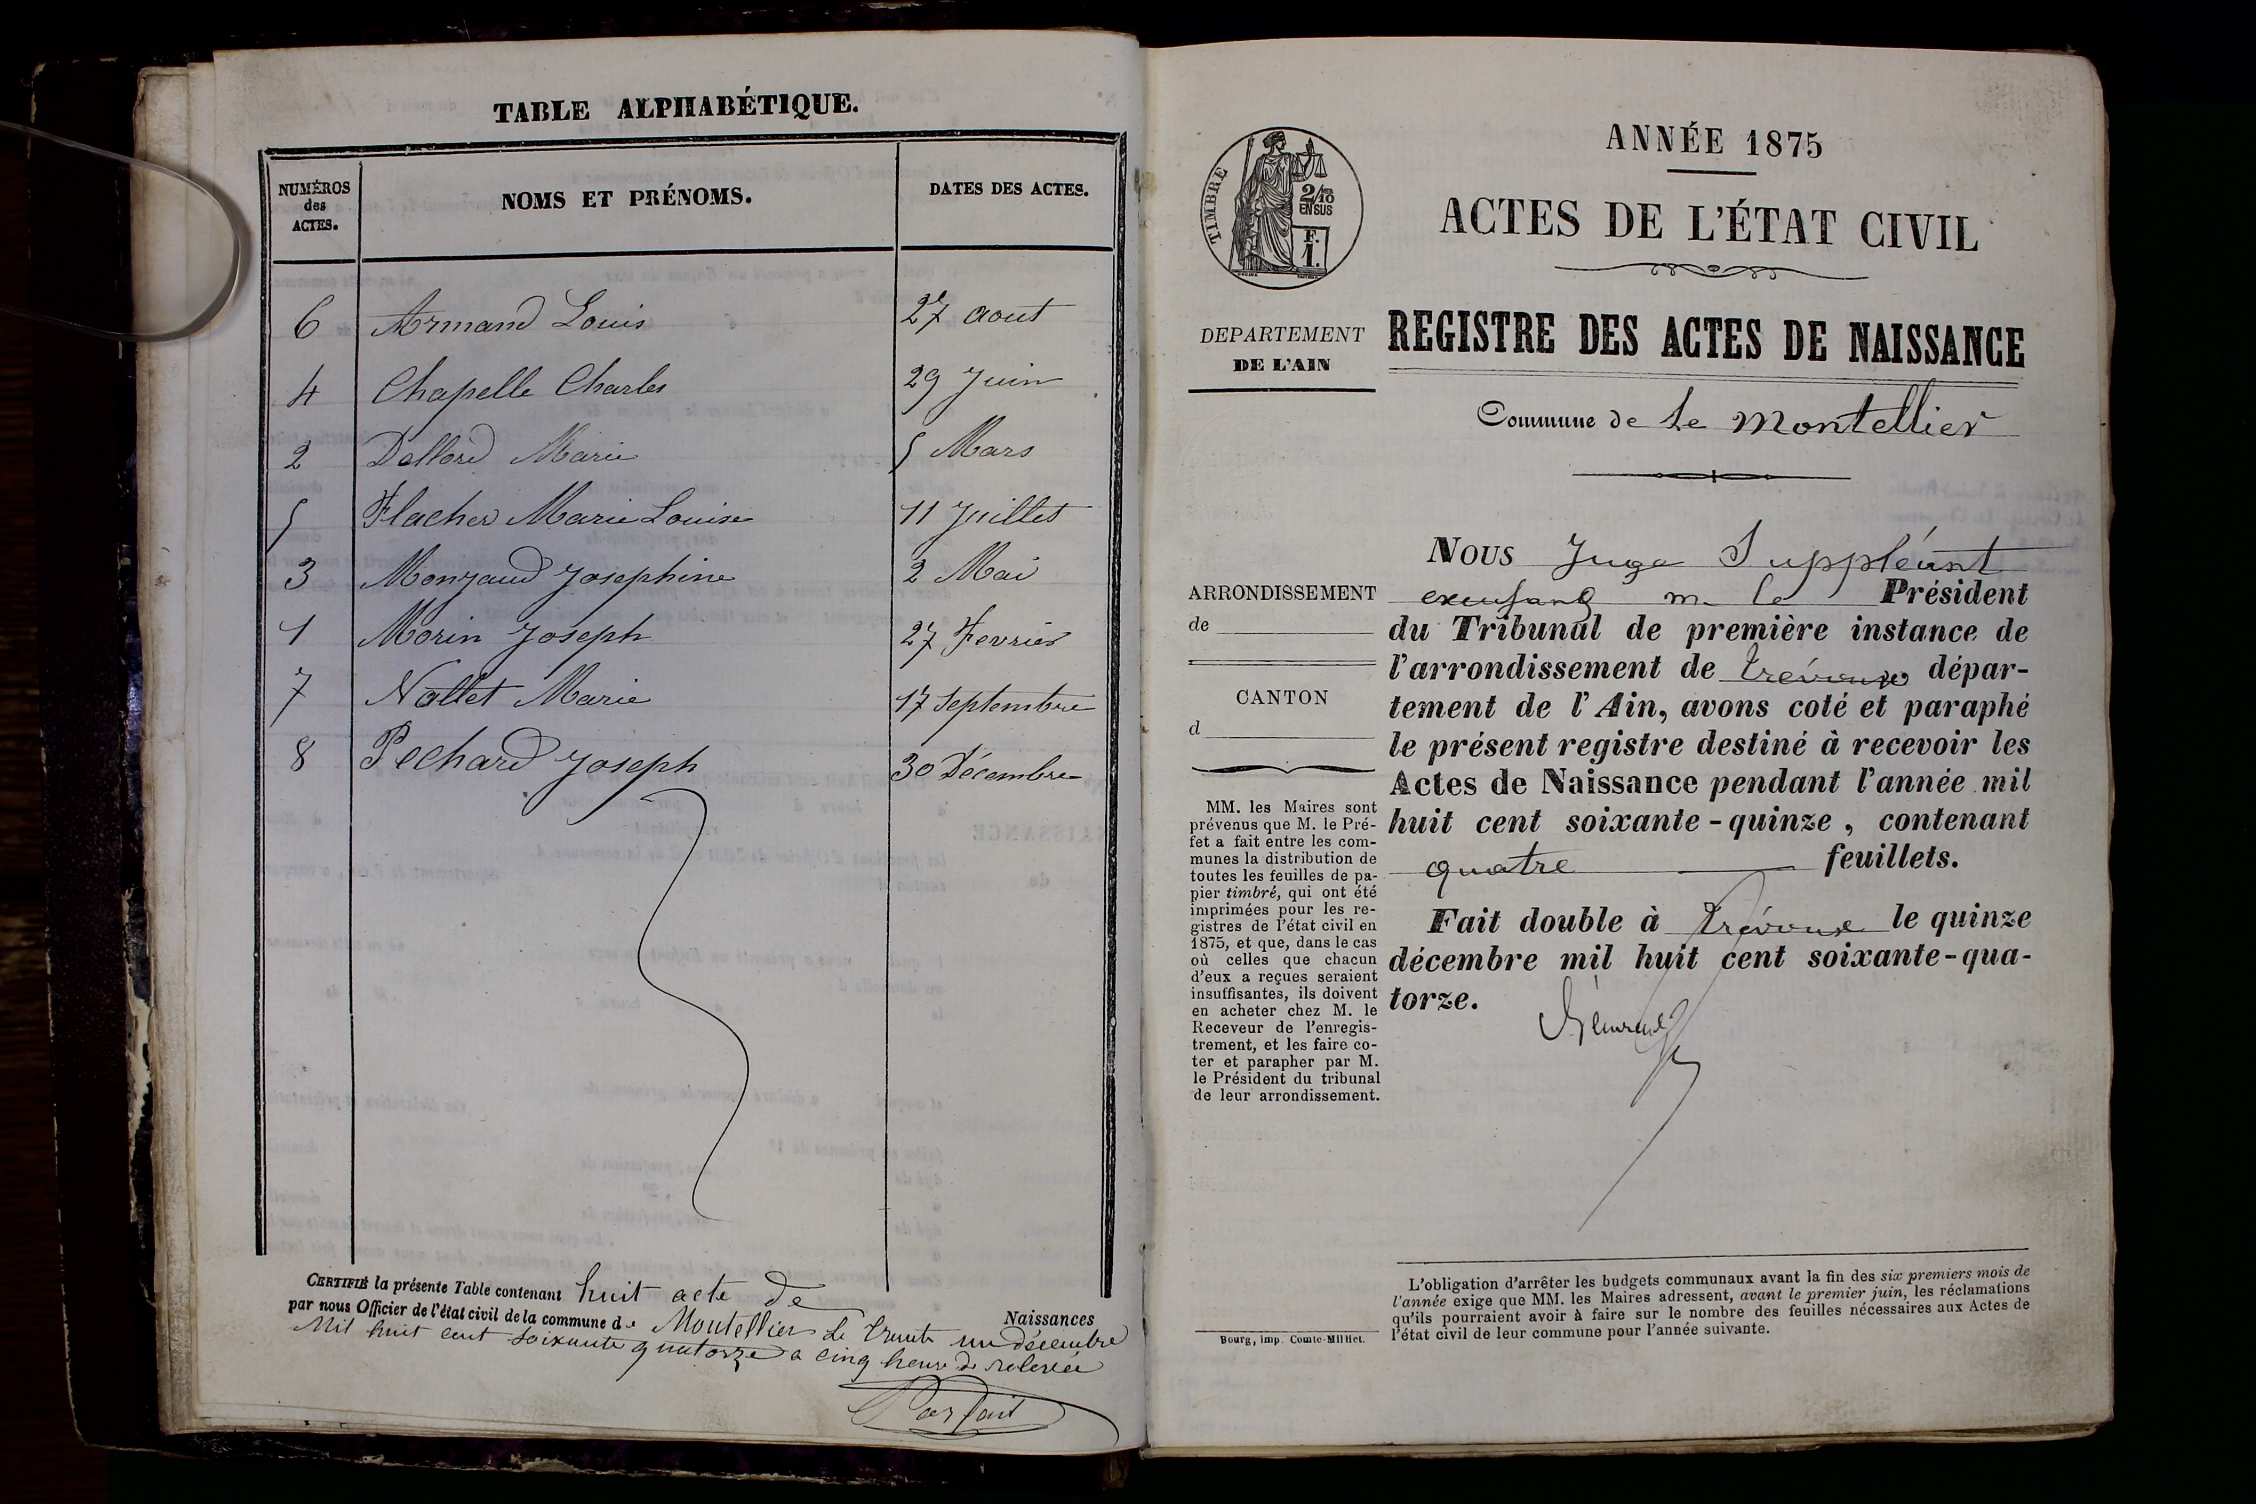 TABLE ALPHABÉTIQUE.
NUMÉROS
des
ACTES.
NOMS ET PRÉNOMS.
DATES DES ACTES.
6 Armand Louis 27 aout
4 Chapelle Charles 29 Juin
2 Dallard Marie 5 Mars
5 Flacher Marie Louise 11 Juillet
3 Monzaud Josephine 2 Mai
1 Morin Joseph 27 Fevrier
7 Nallet Marie 17 Septembre
8 Pechard Joseph 30 Décembre
CERTIFIÉ la présente Table contenant huit acte de Naissances
par nous Officier de l'état civil de la commune de Montellier le trente un décembre
Mil huit cent soixante quatorze a cinq heure de relevée
Parfait
TIMBRE
2/10
EN SUS
F.
1.
ANNÉE 1875
ACTES DE L'ÉTAT CIVIL
DEPARTEMENT
DE L'AIN
REGISTRE DES ACTES DE NAISSANCE
Commune de Le Montellier
ARRONDISSEMENT
de
CANTON
d
MM. les Maires sont
prévenus que M. le Pré-
fet a fait entre les com-
munes la distribution de
toutes les feuilles de pa-
pier timbré, qui ont été
imprimées pour les re-
gistres de l'état civil en
1875, et que, dans le cas
où celles que chacun
d'eux a reçues seraient
insuffisantes, ils doivent
en acheter chez M. le
Receveur de l'enregis-
trement, et les faire co-
ter et parapher par M.
le Président du tribunal
de leur arrondissement.
Bourg, imp. Comte-Milliet.
NOUS Juge Suppléant
m. le Président
du Tribunal de première instance de
l'arrondissement de Trévoux dépar-
tement de l'Ain, avons coté et paraphé
le présent registre destiné à recevoir les
Actes de Naissance pendant l'année mil
huit cent soixante-quinze, contenant
quatre feuillets.
Fait double à Trévoux le quinze
décembre mil huit cent soixante-qua-
torze.
L'obligation d'arrêter les budgets communaux avant la fin des six premiers mois de
l'année exige que MM. les Maires adressent, avant le premier juin, les réclamations
qu'ils pourraient avoir à faire sur le nombre des feuilles nécessaires aux Actes de
l'état civil de leur commune pour l'année suivante.